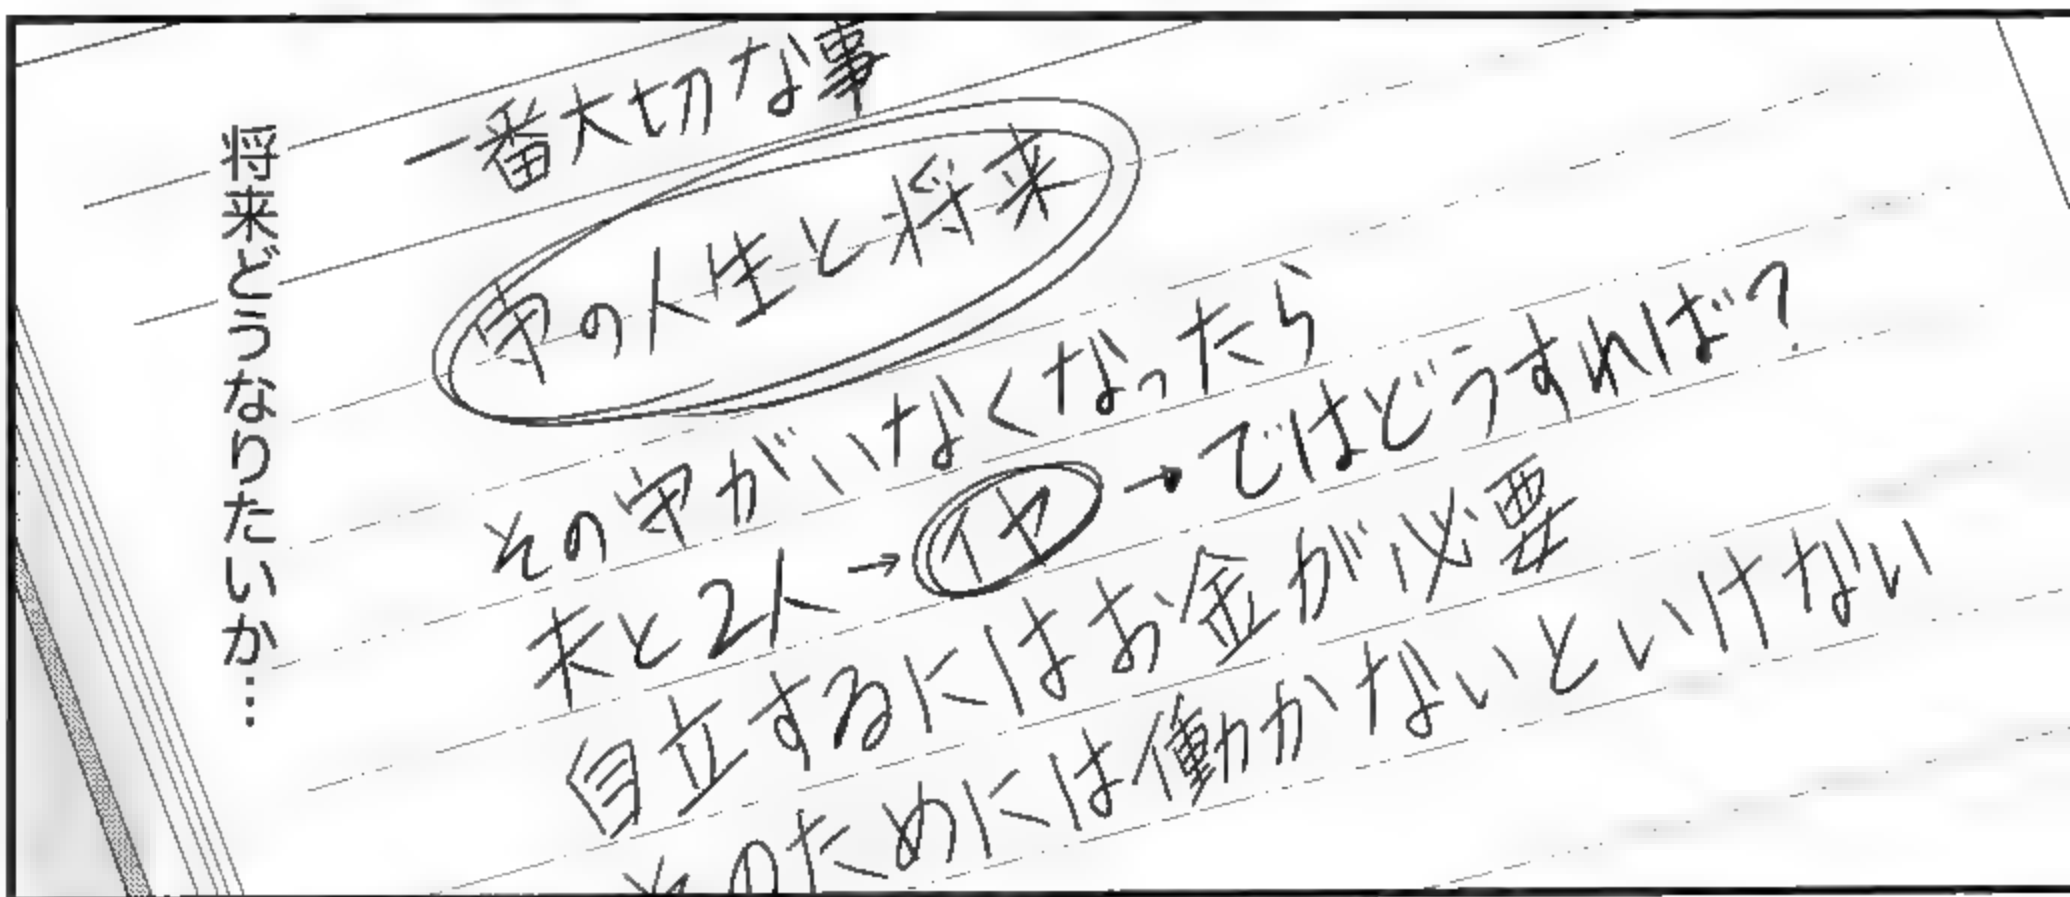 将来どうなりたいか…
一番大切な事
守の人生と将来
その守がいなくなったら
夫と2人→イヤ→ではどうすれば?
自立するにはお金が必要
そのためには働かないといけない